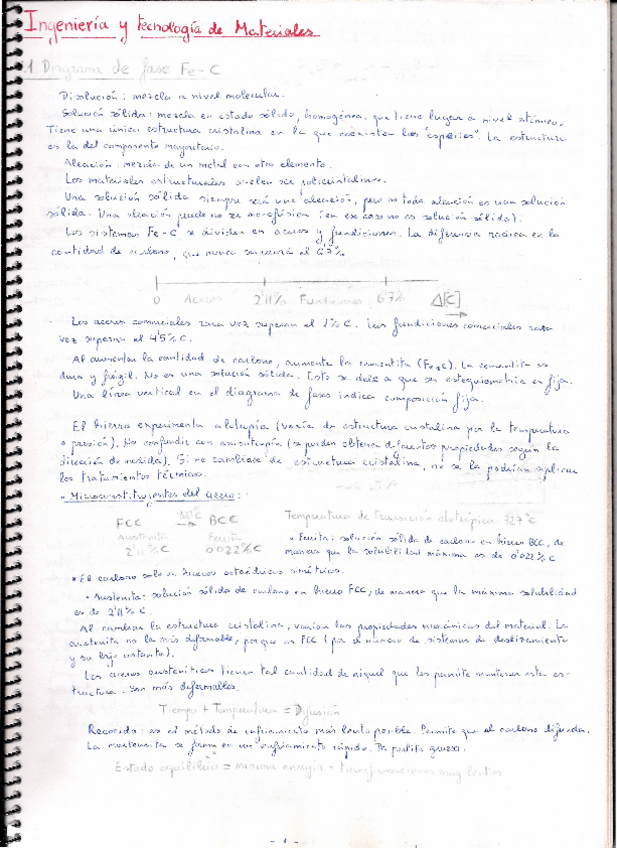 Ingeniería y tecnología de Materiales
1 Diagrama de fase Fe-C
Disolución: mezcla a nivel molecular.
Solución sólida: mezcla en estado sólido, homogénea, que tiene lugar a nivel atómico.
Tiene una única estructura cristalina en la que coexisten las "especies". La estructura
es la del componente mayoritario.
Aleación: mezcla de un metal con otro elemento.
Los materiales estructurales suelen ser policristalinos.
Una solución sólida siempre será una aleación, pero no toda aleación es una solución
sólida. Una aleación puede no ser monofásica (en ese caso no es solución sólida).
Los sistemas Fe-C se dividen en aceros y fundiciones. La diferencia radica en la
cantidad de carbono, que nunca superará el 6'7%.
0 Aceros 2'11% Fundiciones 6'7% Δ[C]
Los aceros comerciales rara vez superan el 1% C. Las fundiciones comerciales rara
vez superan el 4'5% C.
Al aumentar la cantidad de carbono, aumenta la cementita (Fe3C). La cementita es
dura y frágil. No es una solución sólida. Esto se debe a que su estequiometría es fija.
Una línea vertical en el diagrama de fases indica composición fija.
El hierro experimenta alotropía (varía de estructura cristalina por la temperatura
o presión). No confundir con anisotropía (se pueden obtener diferentes propiedades según la
dirección de medida). Si no cambiase de estructura cristalina, no se le podrían aplicar
los tratamientos térmicos.
- Microconstituyentes del acero:
FCC → BCC Temperatura de transición alotrópica 727°C
Austenita Ferrita • Ferrita: solución sólida de carbono en hierro BCC, de
2'11% C 0'022% C manera que la solubilidad máxima es de 0'022% C
* El carbono solo en huecos octaédricos
• Austenita: solución sólida de carbono en hierro FCC, de manera que la máxima solubilidad
es de 2'11% C.
Al cambiar la estructura cristalina, varían las propiedades mecánicas del material. La
austenita es la más deformable, porque es FCC (por el número de sistemas de deslizamiento
y su
Los aceros austeníticos tienen tal cantidad de níquel que les permite mantener esta es-
tructura. Son más deformables.
Tiempo + Temperatura = Difusión
Recocido: es el método de enfriamiento más lento posible. Permite que el carbono difunda.
La martensita se forma en un enfriamiento rápido.
Estado equilibrio = mínima energía - transformaciones muy lentas
- 1 -